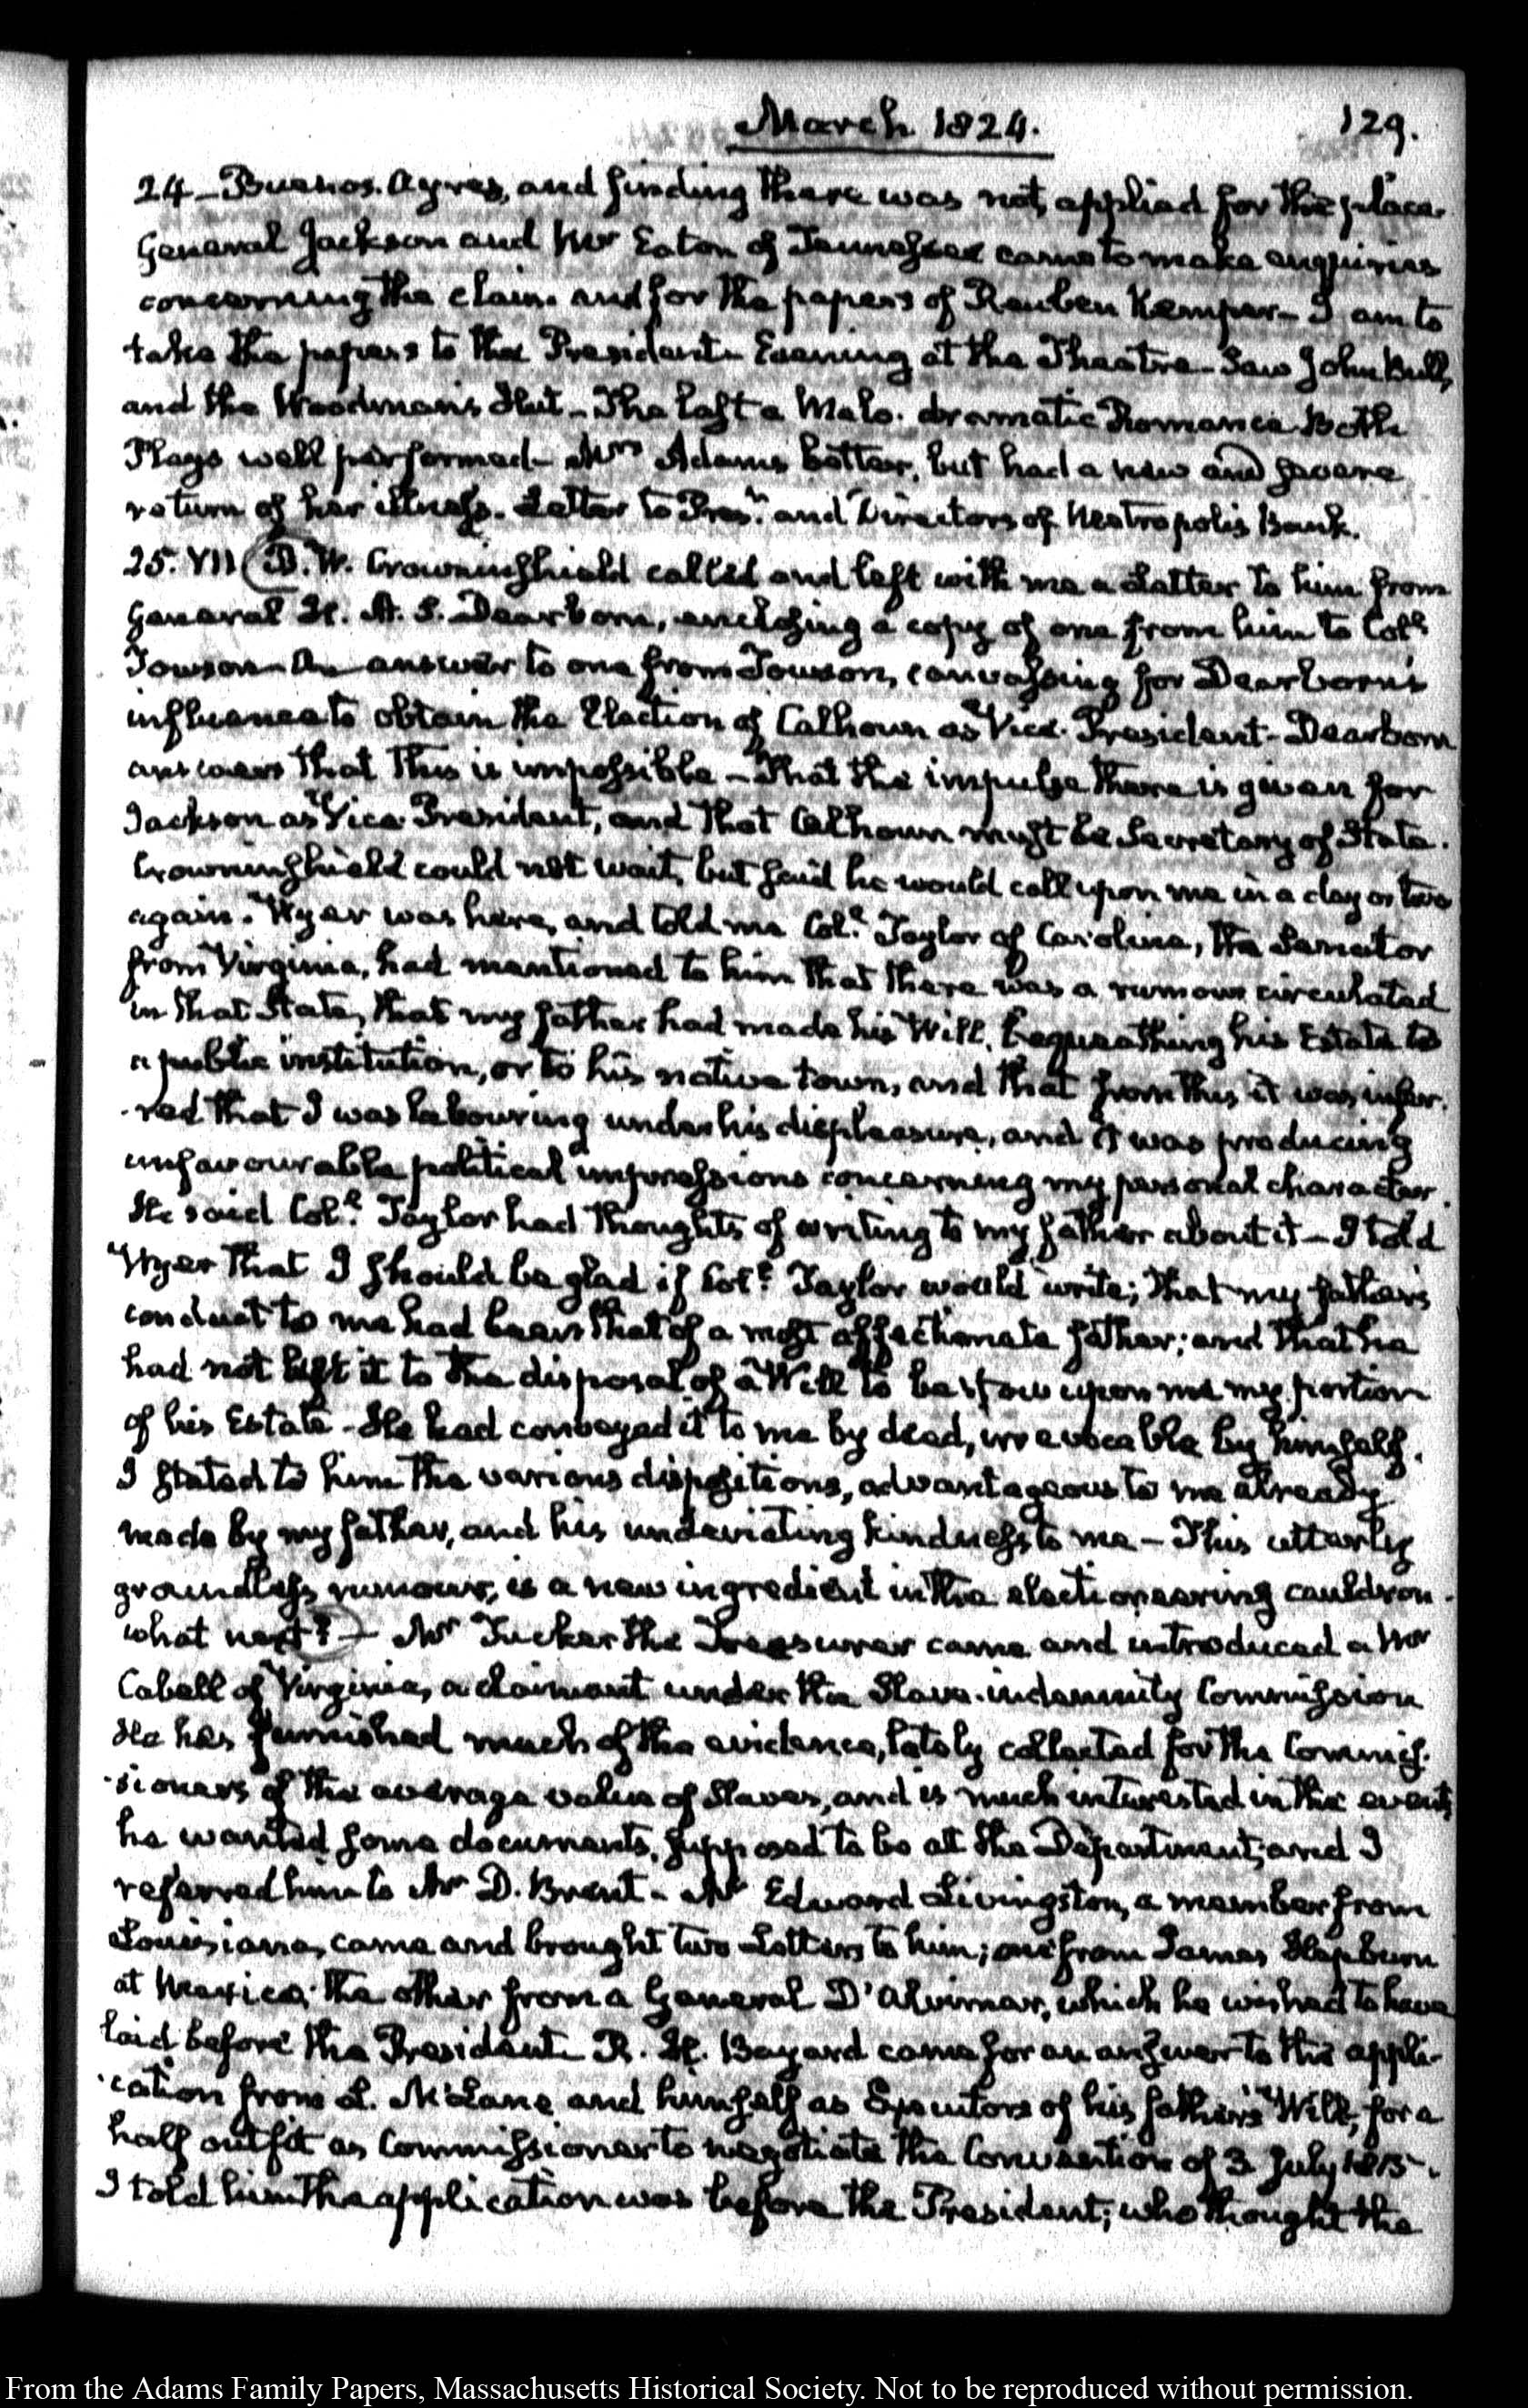 March 1824.
129.
24 – Buenos Ayres, and finding there was not, applied for the place.
General Jackson and Mr Eaton of Tennessee came to make enquiries
concerning the claim and for the papers of Reuben Kemper – I am to
take the papers to the President – Evening at the Theatre – Saw John Bull,
and the Woodman's Hut – The last a Melo-dramatic Romance. Both
Plays well performed – Mrs Adams better, but had a new and severe
return of her illness. Letter to Prest. and Directors of Metropolis Bank.
25. VII B. W. Crowninshield called and left with me a Letter to him from
General H. A. S. Dearborn, enclosing a copy of one from him to Coll.
Towson – An answer to one from Towson, canvassing for Dearborn's
influence to obtain the Election of Calhoun as Vice-President – Dearborn
answers that this is impossible – That the impulse there is given for
Jackson as Vice-President, and that Calhoun must be Secretary of State.
Crowninshield could not wait, but said he would call upon me in a day or two
again. Wyer was here, and told me Coll. Taylor of Caroline, the Senator
from Virginia, had mentioned to him that there was a rumour circulated
in that State, that my father had made his Will, bequeathing his Estate to
a public institution, or to his native town, and that from this it was infer-
-red that I was labouring under his displeasure, and it was producing
unfavourable political impressions concerning my personal character.
He said Coll. Taylor had thoughts of writing to my father about it – I told
Wyer that I should be glad if Coll. Taylor would write; that my father's
conduct to me had been that of a most affectionate father; and that he
had not left it to the disposal of a Will to bestow upon me my portion
of his Estate – He had conveyed it to me by deed, irrevocable by himself.
I stated to him the various dispositions, advantageous to me already
made by my father, and his undeviating kindness to me – This utterly
groundless rumour, is a new ingredient in the electioneering cauldron.
what next? – Mr Tucker the Treasurer came and introduced a Mr
Cabell of Virginia, a claimant under the Slave-indemnity Commission
He has furnished much of the evidence, lately collected for the Commis-
-sioners of the average value of Slaves, and is much interested in the event,
he wanted some documents, supposed to be at the Department, and I
referred him to Mr D. Brent – Mr Edward Livingston, a member from
Louisiana, came and brought two Letters to him; one from James Hepburn
at Mexico; the other from a General D'Alvimar, which he wished to have
laid before the President – R. H. Bayard came for an answer to the appli-
-cation from L. McLane and himself as Executors of his father's Will, for a
half outfit as Commissioner to negotiate the Convention of 3 July 1815.
I told him the application was before the President; who thought the
From the Adams Family Papers, Massachusetts Historical Society. Not to be reproduced without permission.